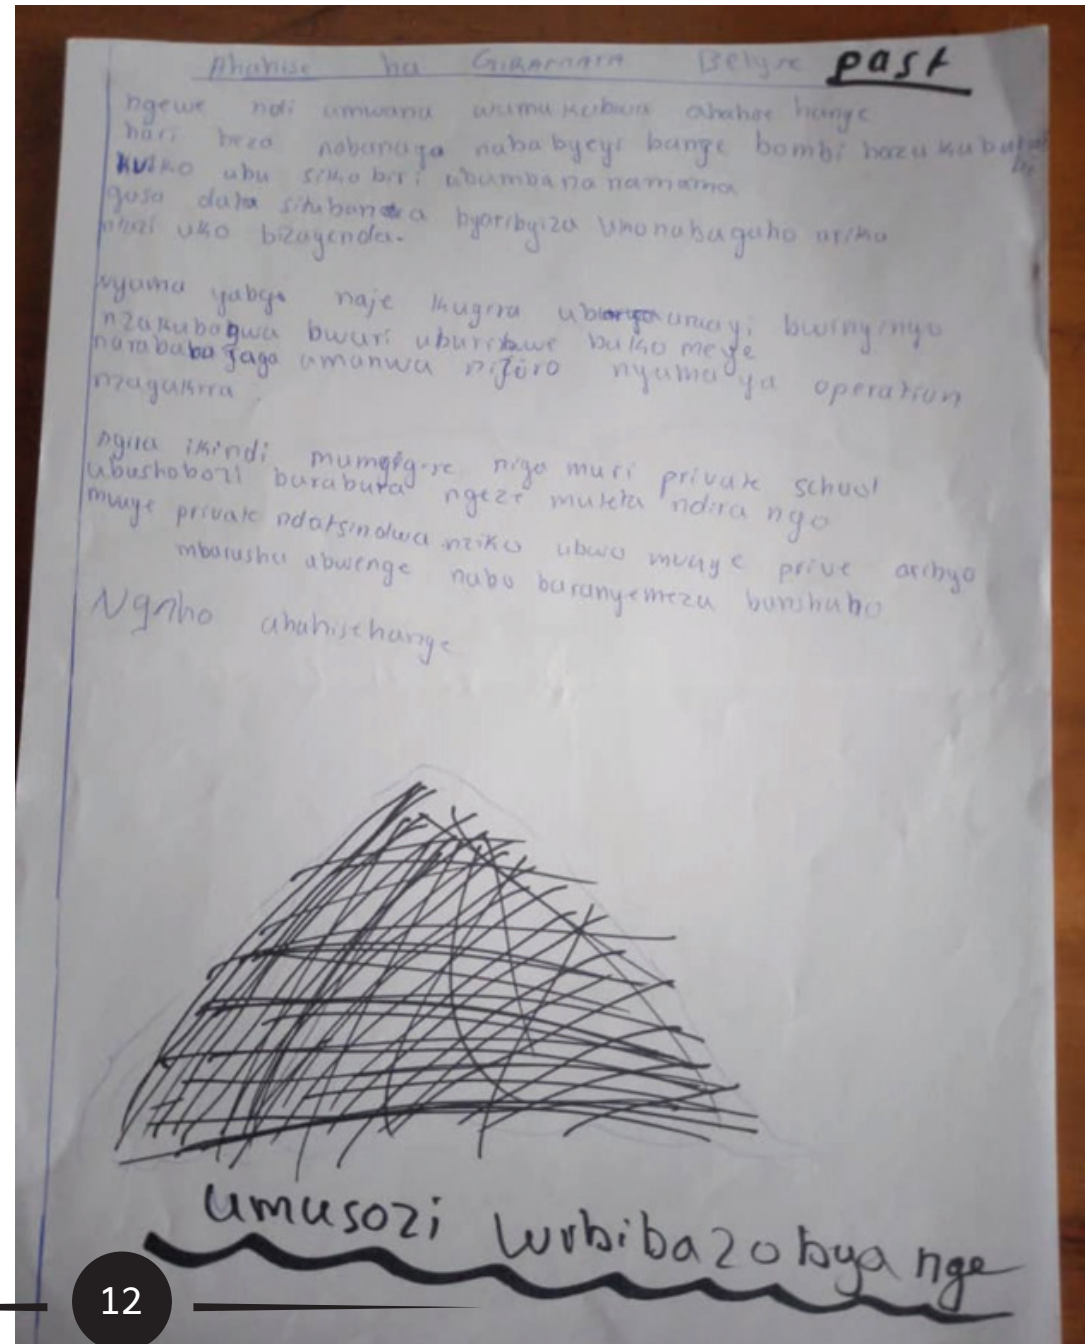 Ahahise ha GIRAMATA Belyse past
ngewe ndi umwana wumukobwa ahahise hange
hari heza nabanaga nababyeyi bange bombi
ubu siko biri ubu mbana namama
gusa data situbana byaribyiza ukonabagaho ariko
uko bizagenda.
nyuma yabyo naje kugira uburwayi bwinyinyo
nzakubagwa bwari uburibwe buko meye
narababaraga umunwa nijoro nyuma ya operation
nzagukira.
ngira ikindi niga muri private school
ubushobozi burabura ngeze muleta ndira ngo
muuye private ndatsindwa nziko ubwo muuye prive aribyo
mbarusha ubwenge nabo baranyemeza banshubo
Ngaho ahahisehange
umusozi wibibazobyange
12